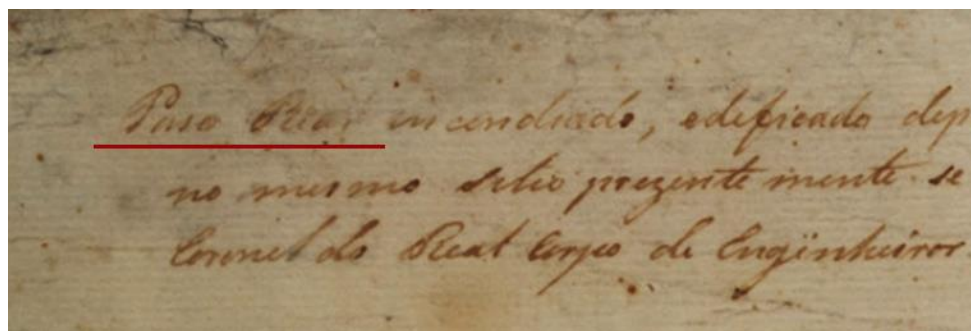 Paso Real incendiado, edificado dep
no mesmo sitio prezente mente se
Coronel do Real Corpo de Engïnheiros